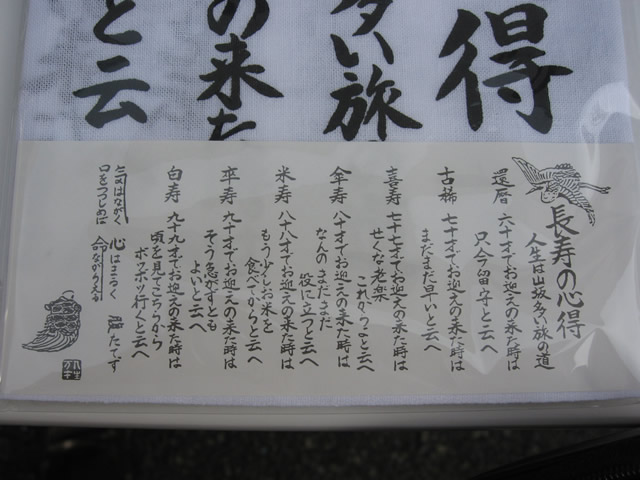 得
多い旅
の来た
と云
長寿の心得
人生は山坂多い旅の道
還暦 六十才でお迎えの来た時は
只今留守と云へ
古稀 七十才でお迎えの来た時は
まだまだ早いと云へ
喜寿 七十七才でお迎えの来た時は
せくな老楽
これからよと云へ
傘寿 八十才でお迎えの来た時は
なんのまだまだ
役に立つと云へ
米寿 八十八才でお迎えの来た時は
もう少しお米を
食べてからと云へ
卒寿 九十才でお迎えの来た時は
そう急がずとも
よいと云へ
白寿 九十九才でお迎えの来た時は
頃を見てこちらから
ボツボツ行くと云へ
気はながく 心はまるく 腹たてず
口をつつしめば 命ながらへる